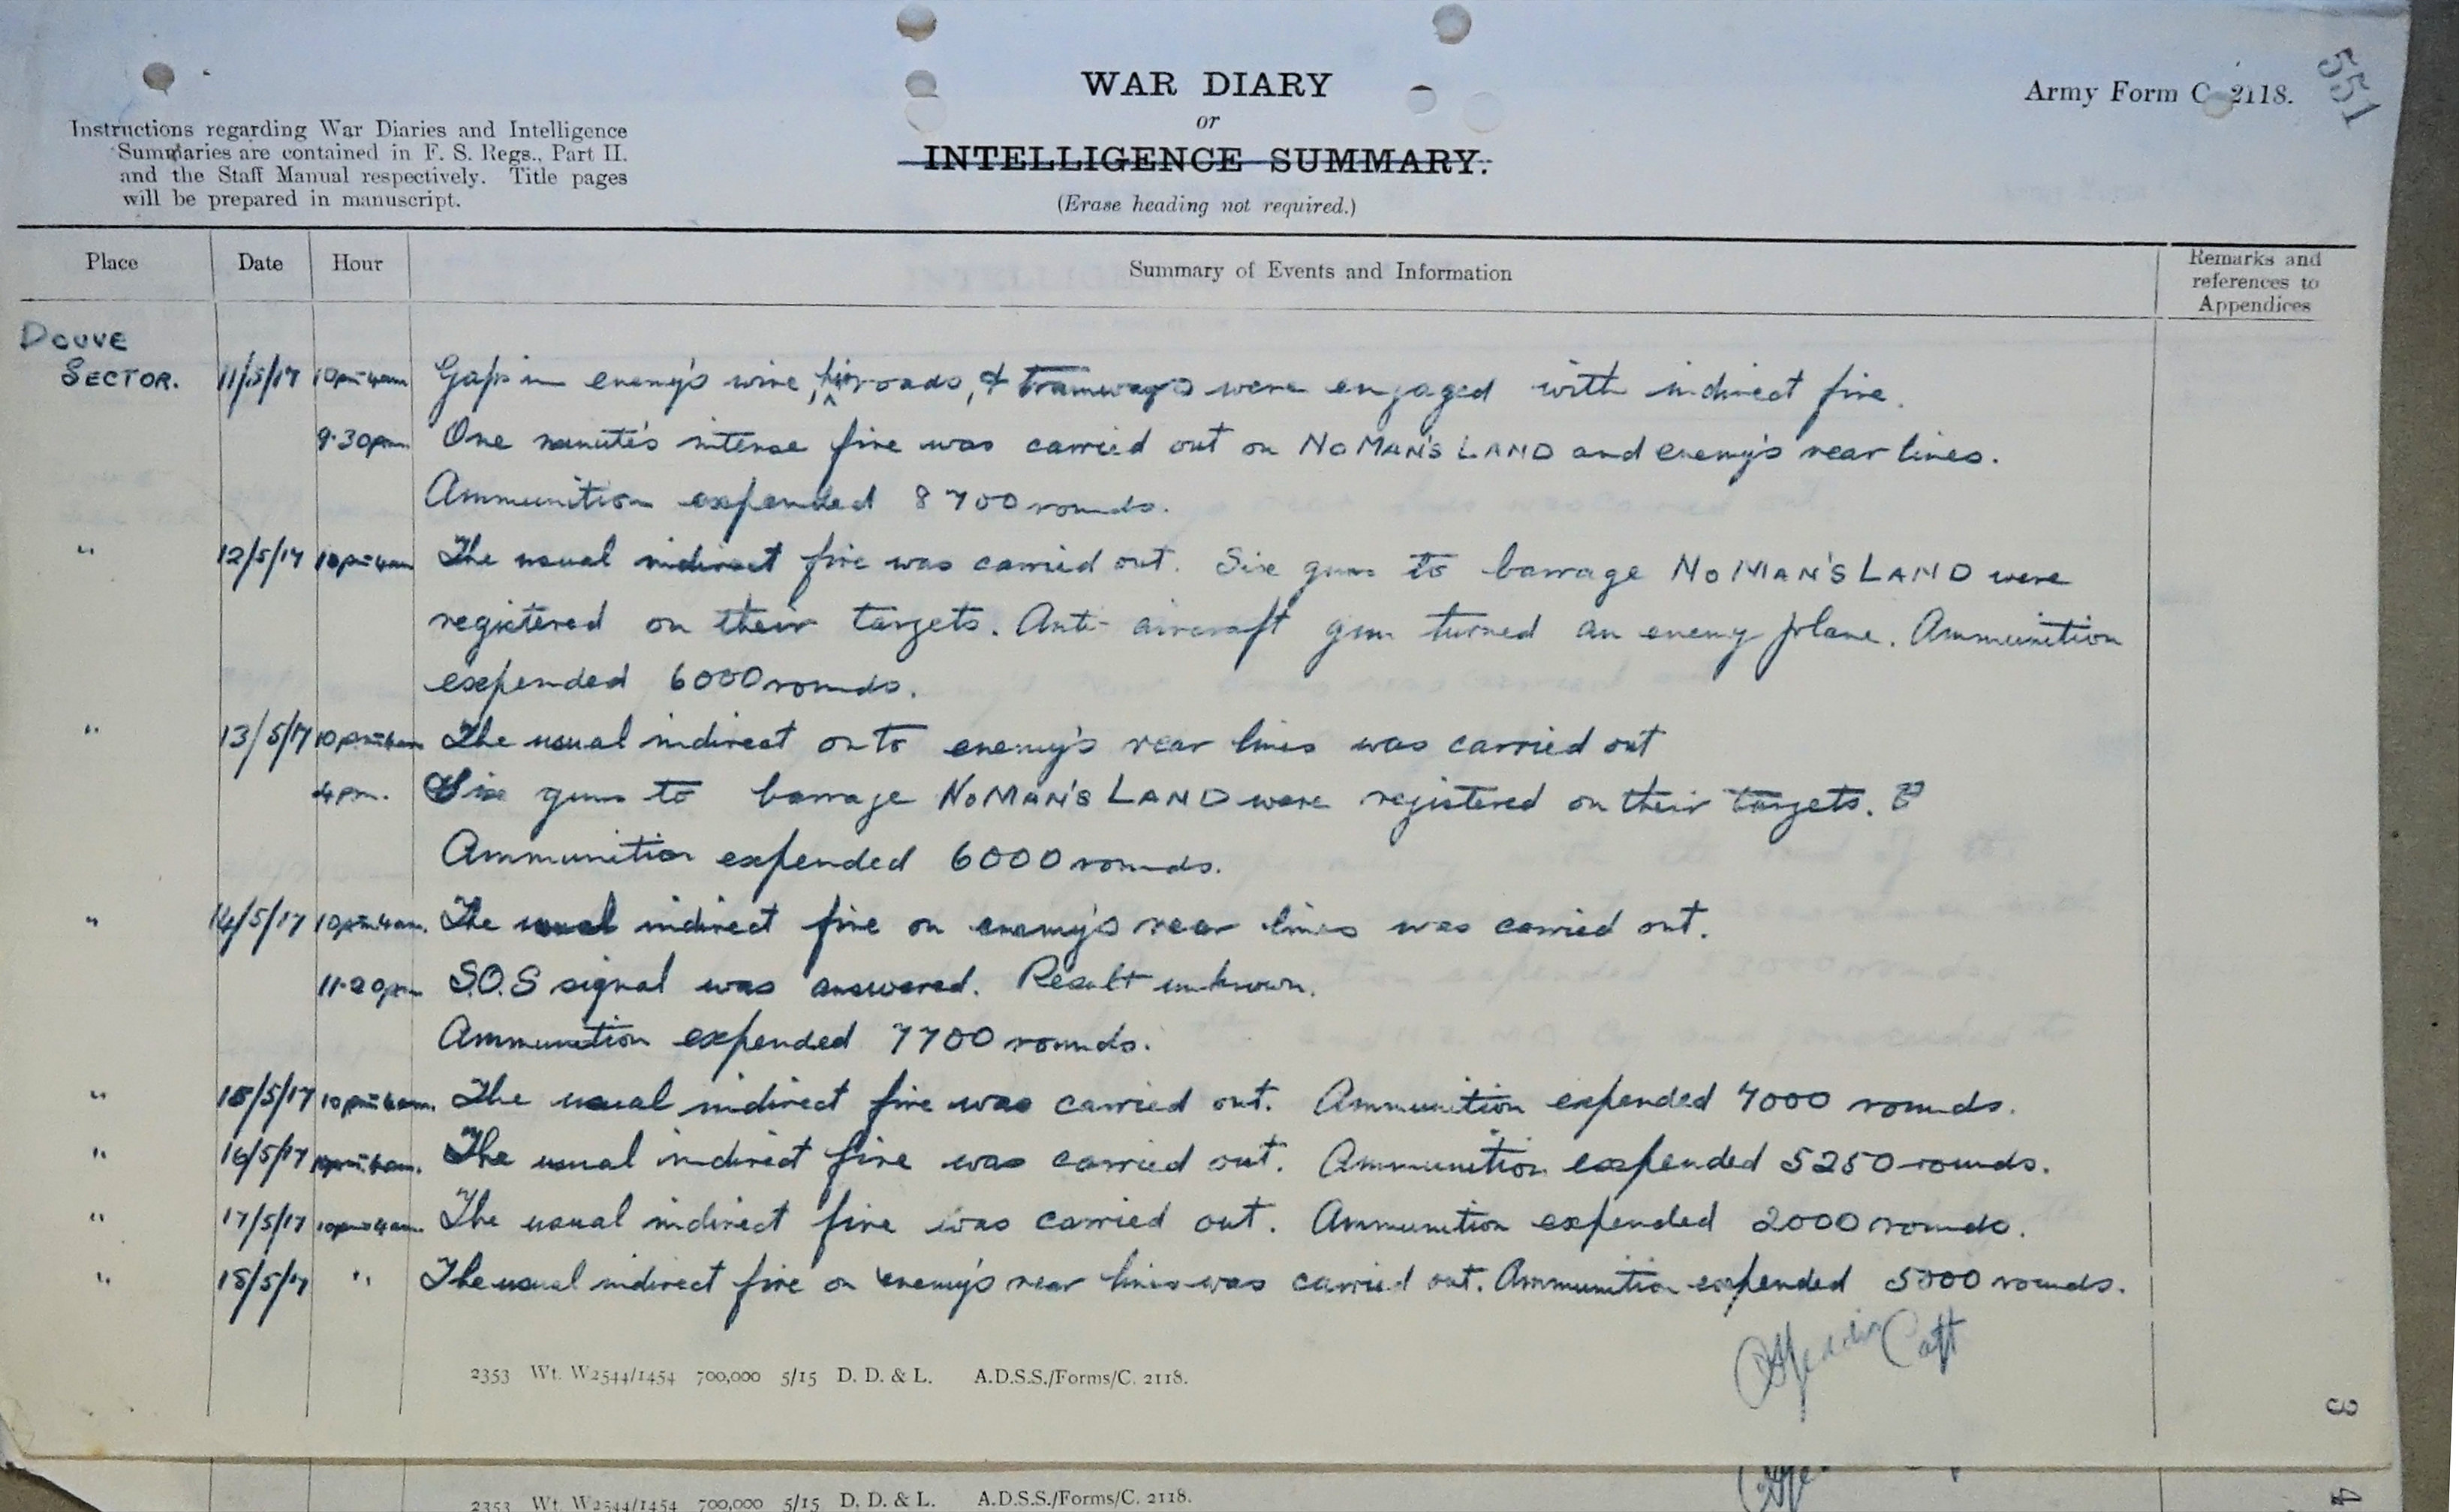 551
WAR DIARY
Army Form C. 2118.
or
Instructions regarding War Diaries and Intelligence
Summaries are contained in F. S. Regs., Part II.
and the Staff Manual respectively. Title pages
will be prepared in manuscript.
INTELLIGENCE SUMMARY.
(Erase heading not required.)
Place Date Hour Summary of Events and Information Remarks and references to Appendices
DOUVE
SECTOR. 11/5/17 10pm-4am Gaps in enemy's wire, roads, & tramways were engaged with indirect fire.
9.30pm One minute's intense fire was carried out on NO MAN'S LAND and enemy's rear lines.
Ammunition expended 8700 rounds.
" 12/5/17 10pm-4am The usual indirect fire was carried out. Six guns to barrage NO MAN'S LAND were
registered on their targets. Anti-aircraft gun turned an enemy plane. Ammunition
expended 6000 rounds.
" 13/5/17 10pm-4am The usual indirect onto enemy's rear lines was carried out
4pm. Six guns to barrage NO MAN'S LAND were registered on their targets.
Ammunition expended 6000 rounds.
" 14/5/17 10pm-4am. The usual indirect fire on enemy's rear lines was carried out.
11.20pm S.O.S signal was answered. Result unknown.
Ammunition expended 7700 rounds.
" 15/5/17 10pm-4am. The usual indirect fire was carried out. Ammunition expended 7000 rounds.
" 16/5/17 10pm-4am. The usual indirect fire was carried out. Ammunition expended 5250 rounds.
" 17/5/17 10pm-4am. The usual indirect fire was carried out. Ammunition expended 2000 rounds.
" 18/5/17 " The usual indirect fire on enemy's rear lines was carried out. Ammunition expended 5000 rounds.
Capt
2353 Wt. W2544/1454 700,000 5/15 D. D. & L. A.D.S.S./Forms/C. 2118.
3
2353 Wt. W2544/1454 700,000 5/15 D. D. & L. A.D.S.S./Forms/C. 2118.
4